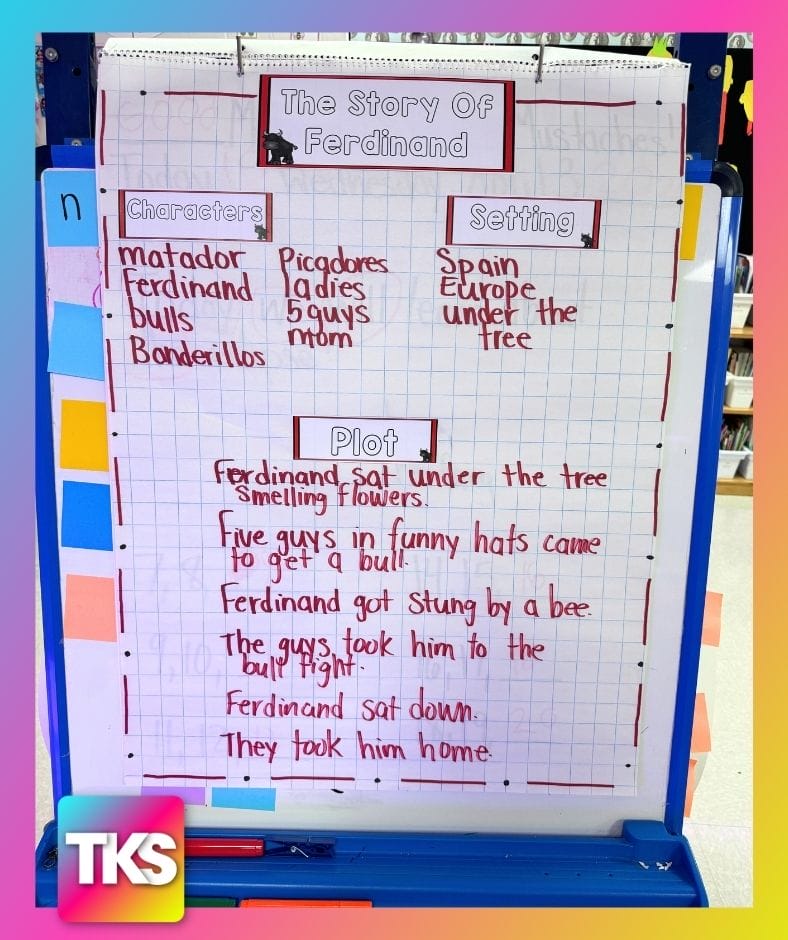 The Story Of
Ferdinand
n
Characters
matador
Ferdinand
bulls
Banderillos
Picadores
ladies
5 guys
mom
Setting
Spain
Europe
under the
tree
Plot
Ferdinand sat under the tree
smelling flowers.
Five guys in funny hats came
to get a bull.
Ferdinand got stung by a bee.
The guys took him to the
bull fight.
Ferdinand sat down.
They took him home.
TKS